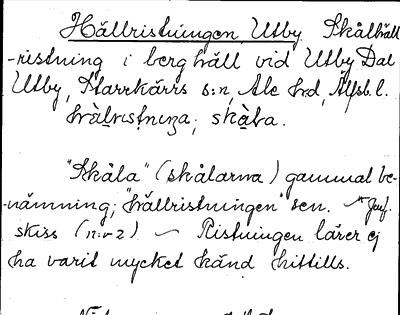 Hällristningen Utby. Skålhäll
-ristning i berghäll vid Utby Dal
Utby, Starrkärrs s:n, Ale hd, Älfsb. l.
hälristniŋa; skåla.
"Skåla" (skålarna) gammal be-
-nämning; "hällristningen" sen. Jmf.
skiss (n:o 2) — Ristningen lärer ej
ha varit mycket känd hittills.